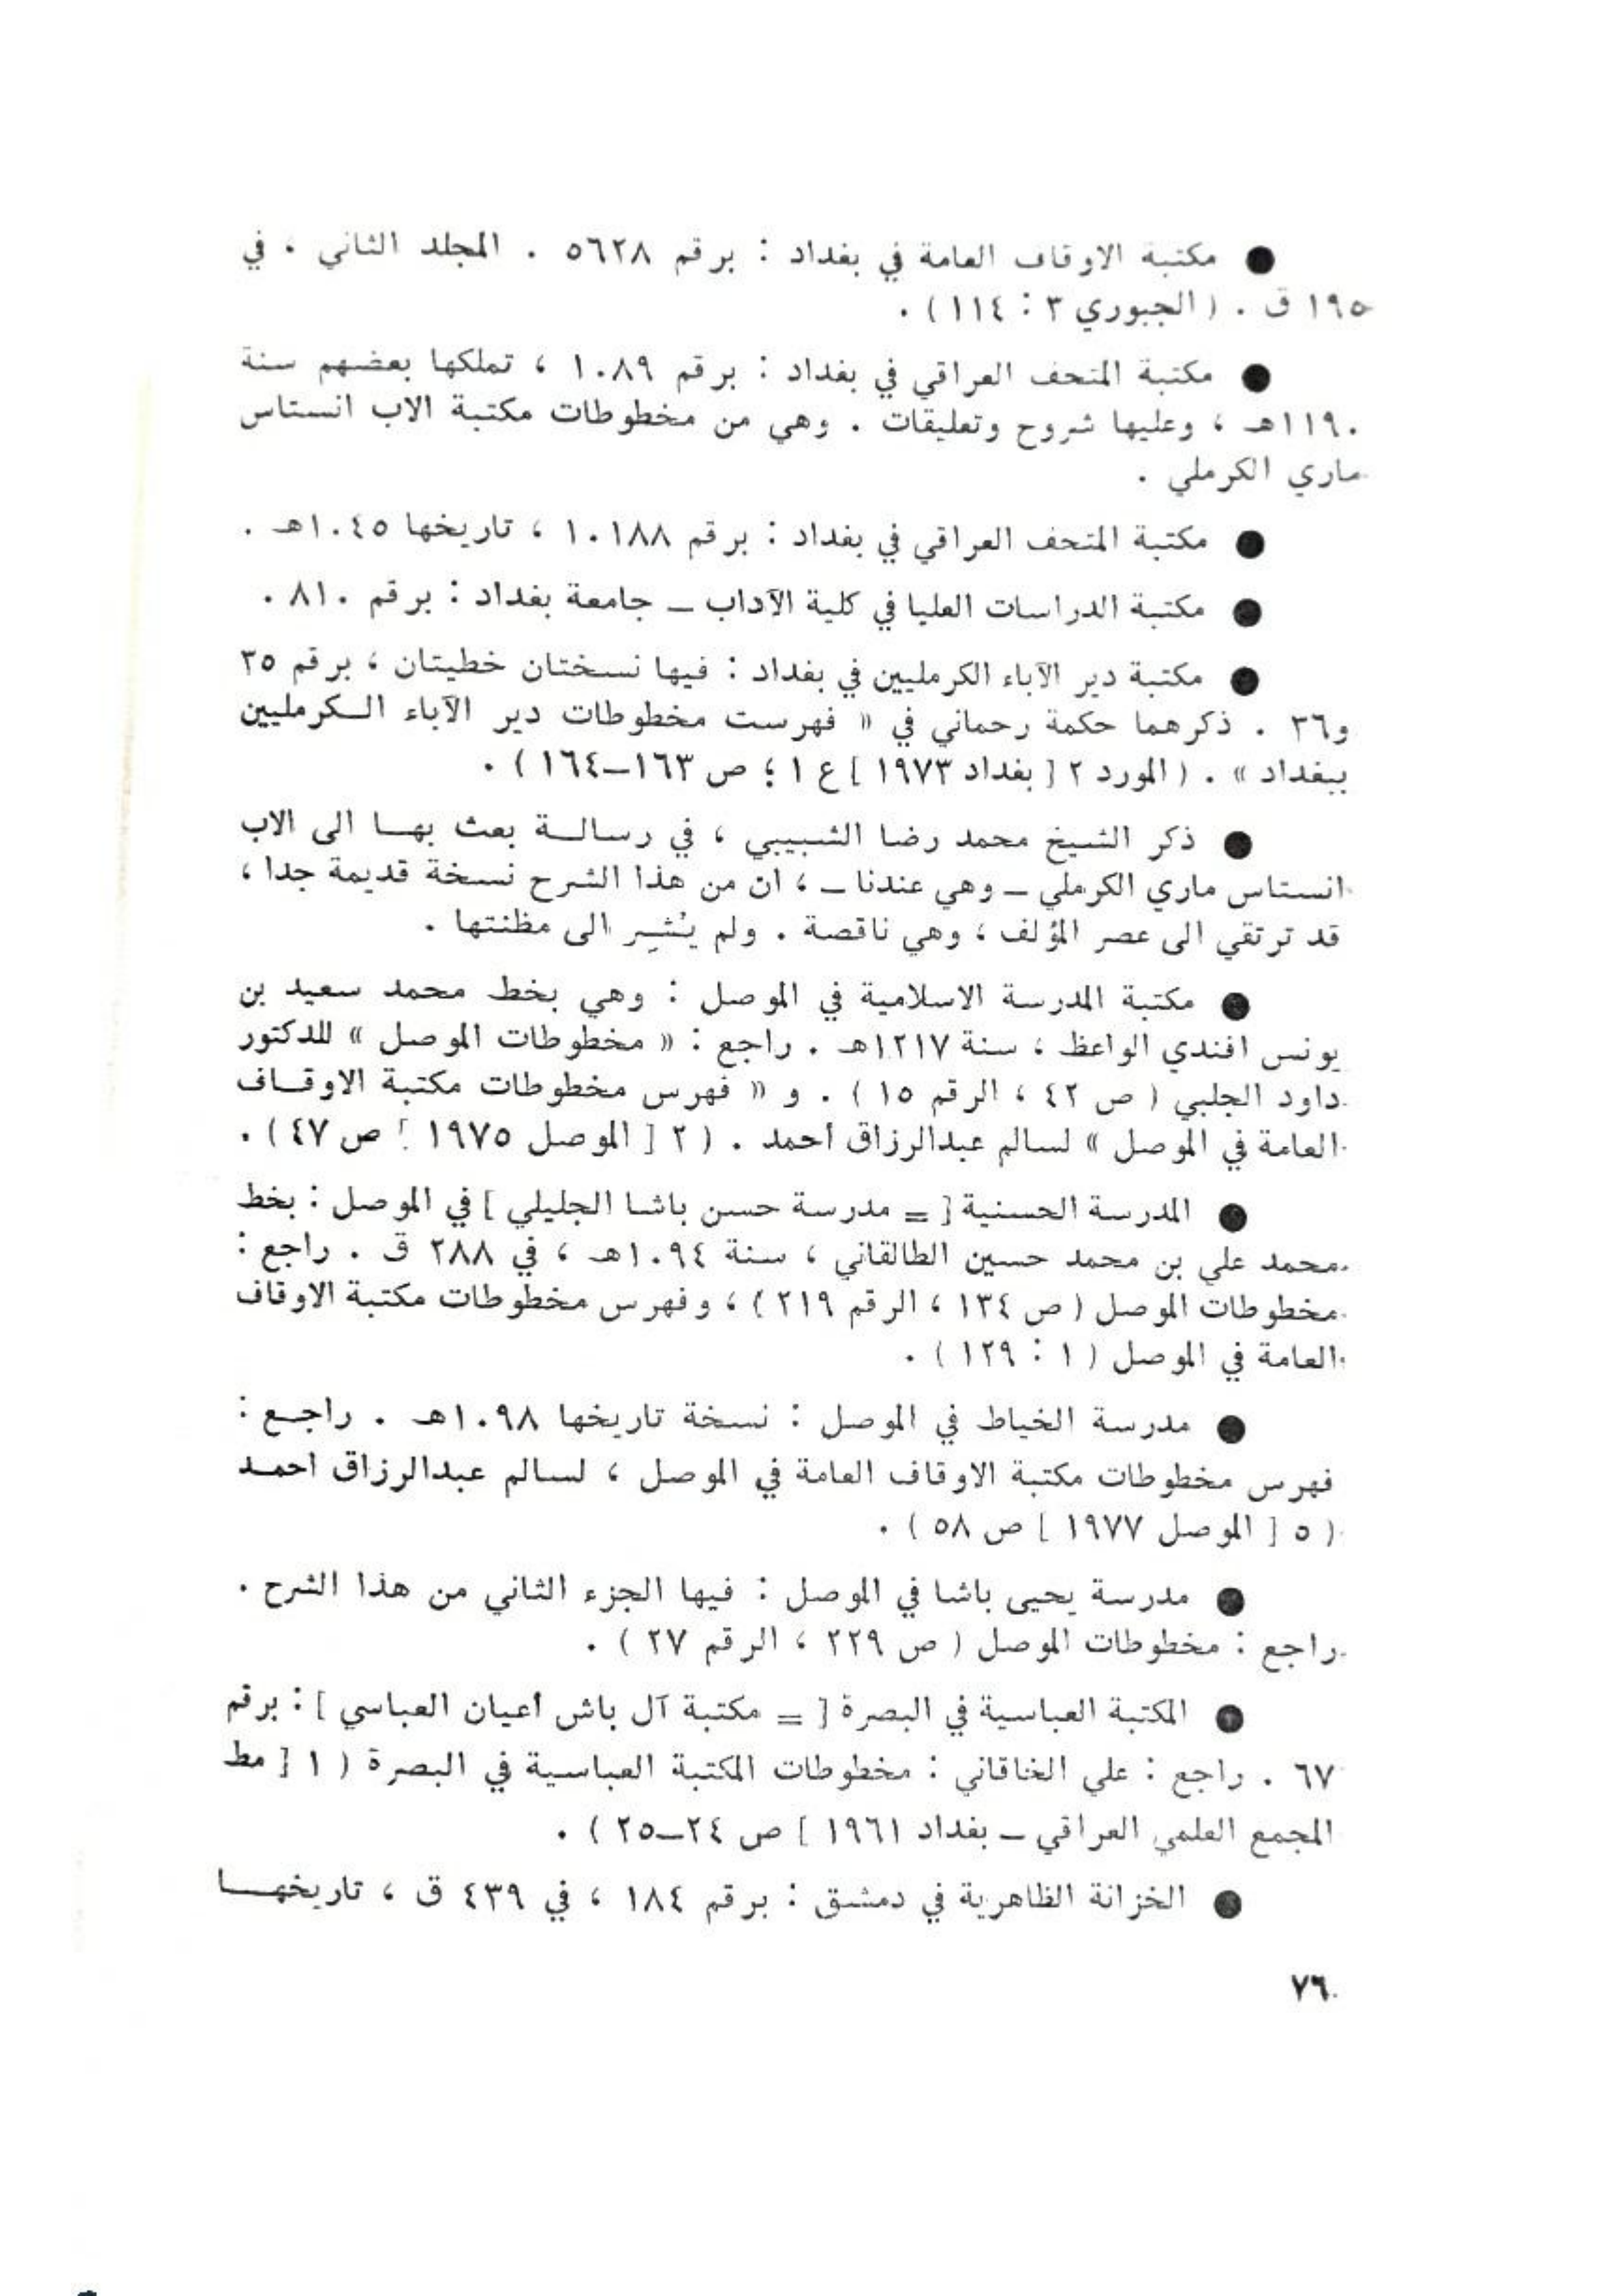 ● مكتبة الاوقاف العامة في بغداد : برقم ٥٦٢٨ . المجلد الثاني . في
١٩٥ ق . ( الجبوري ٣ : ١١٤ ) .
● مكتبة المتحف العراقي في بغداد : برقم ١٠٨٩ ، تملكها بعضهم سنة
١١٩٠هـ ، وعليها شروح وتعليقات . وهي من مخطوطات مكتبة الاب انستاس
ماري الكرملي .
● مكتبة المتحف العراقي في بغداد : برقم ١٠١٨٨ ، تاريخها ١٠٤٥هـ .
● مكتبة الدراسات العليا في كلية الآداب – جامعة بغداد : برقم ٨١٠ .
● مكتبة دير الآباء الكرمليين في بغداد : فيها نسختان خطيتان ، برقم ٣٥
و٣٦ . ذكرهما حكمة رحماني في « فهرست مخطوطات دير الآباء الكرمليين
ببغداد » . ( المورد ٢ [ بغداد ١٩٧٣ ] ع ١ ؛ ص ١٦٣–١٦٤ ) .
● ذكر الشيخ محمد رضا الشبيبي ، في رسالة بعث بها الى الاب
انستاس ماري الكرملي – وهي عندنا – ، ان من هذا الشرح نسخة قديمة جدا ،
قد ترتقي الى عصر المؤلف ، وهي ناقصة . ولم يُشِر الى مظنتها .
● مكتبة المدرسة الاسلامية في الموصل : وهي بخط محمد سعيد بن
يونس افندي الواعظ ، سنة ١٢١٧هـ . راجع : « مخطوطات الموصل » للدكتور
داود الجلبي ( ص ٤٢ ، الرقم ١٥ ) . و « فهرس مخطوطات مكتبة الاوقاف
العامة في الموصل » لسالم عبدالرزاق أحمد . ( ٢ [ الموصل ١٩٧٥ ] ص ٤٧ ) .
● المدرسة الحسنية [ = مدرسة حسن باشا الجليلي ] في الموصل : بخط
محمد علي بن محمد حسين الطالقاني ، سنة ١٠٩٤هـ ، في ٢٨٨ ق . راجع :
مخطوطات الموصل ( ص ١٣٤ ، الرقم ٢١٩ ) ، وفهرس مخطوطات مكتبة الاوقاف
العامة في الموصل ( ١ : ١٢٩ ) .
● مدرسة الخياط في الموصل : نسخة تاريخها ١٠٩٨هـ . راجع :
فهرس مخطوطات مكتبة الاوقاف العامة في الموصل ، لسالم عبدالرزاق احمد
( ٥ [ الموصل ١٩٧٧ ] ص ٥٨ ) .
● مدرسة يحيى باشا في الموصل : فيها الجزء الثاني من هذا الشرح .
راجع : مخطوطات الموصل ( ص ٢٢٩ ، الرقم ٢٧ ) .
● المكتبة العباسية في البصرة [ = مكتبة آل باش أعيان العباسي ] : برقم
٦٧ . راجع : علي الخاقاني : مخطوطات المكتبة العباسية في البصرة ( ١ [ مط
المجمع العلمي العراقي – بغداد ١٩٦١ ] ص ٢٤–٢٥ ) .
● الخزانة الظاهرية في دمشق : برقم ١٨٤ ، في ٤٣٩ ق ، تاريخها
٧٦